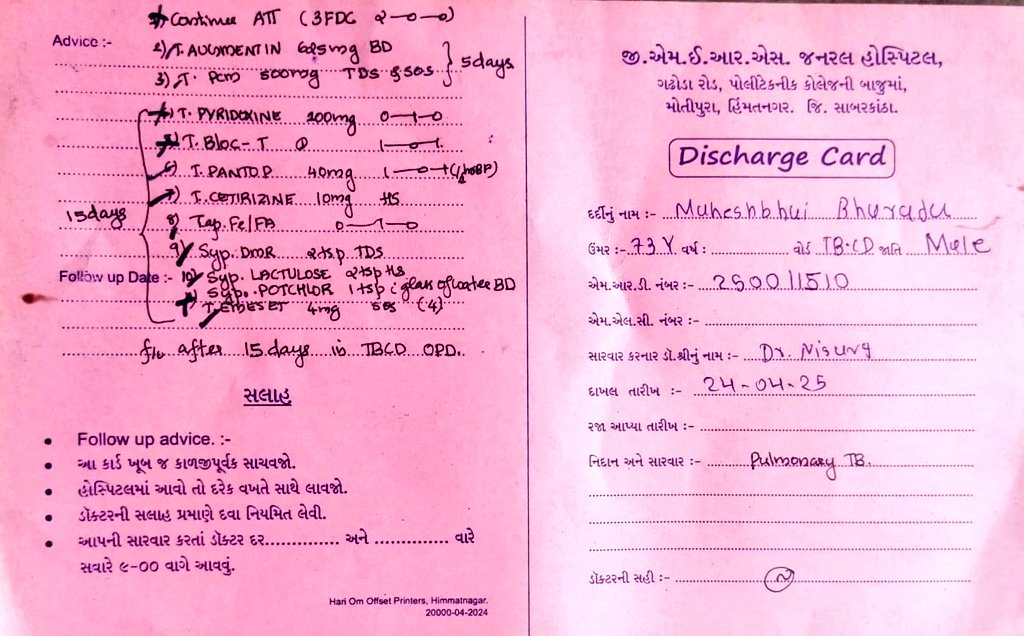 1) Continue ATT (3FDC 2-0-0)
Advice :-
2) T. AUGMENTIN 625mg BD
3) T. Pcm 500mg TDS & SOS
5 days
4) T. PYRIDOXINE 100mg 0-1-0
5) T. Bloc-T
6) T. PANTOP 40mg
7) T. CETIRIZINE 10mg HS
15 days
8) Tap. Fe/FA 0-1-0
9) Syp. DMR 2tsp TDS
Follow up Date :- 10) Syp. LACTULOSE 2tsp HS
Syp. POTCHLOR 1tsp i glass of water BD
T. EMESET 4mg SOS (4)
f/u after 15 days in TBCD OPD.
સલાહ
• Follow up advice. :-
• આ કાર્ડ ખૂબ જ કાળજીપૂર્વક સાચવજો.
• હોસ્પિટલમાં આવો તો દરેક વખતે સાથે લાવજો.
• ડૉક્ટરની સલાહ પ્રમાણે દવા નિયમિત લેવી.
• આપની સારવાર કરતાં ડૉક્ટર દર.............. અને .............. વારે
સવારે ૯-૦૦ વાગે આવવું.
Hari Om Offset Printers, Himmatnagar.
20000-04-2024
જી.એમ.ઈ.આર.એસ. જનરલ હોસ્પિટલ,
ગઢોડા રોડ, પોલીટેકનીક કોલેજની બાજુમાં,
મોતીપુરા, હિંમતનગર. જિ. સાબરકાંઠા.
Discharge Card
દર્દીનું નામ :- Maheshbhai Bharada
ઉંમર :- 73 Y વર્ષ : વોર્ડ TB-CD જાતિ Male
એમ.આર.ડી. નંબર :- 250011510
એમ.એલ.સી. નંબર :-
સારવાર કરનાર ડૉ.શ્રીનું નામ :- Dr. Nisarg
દાખલ તારીખ :- 24-04-25
રજા આપ્યા તારીખ :-
નિદાન અને સારવાર :- Pulmonary TB.
ડૉકટરની સહી :-